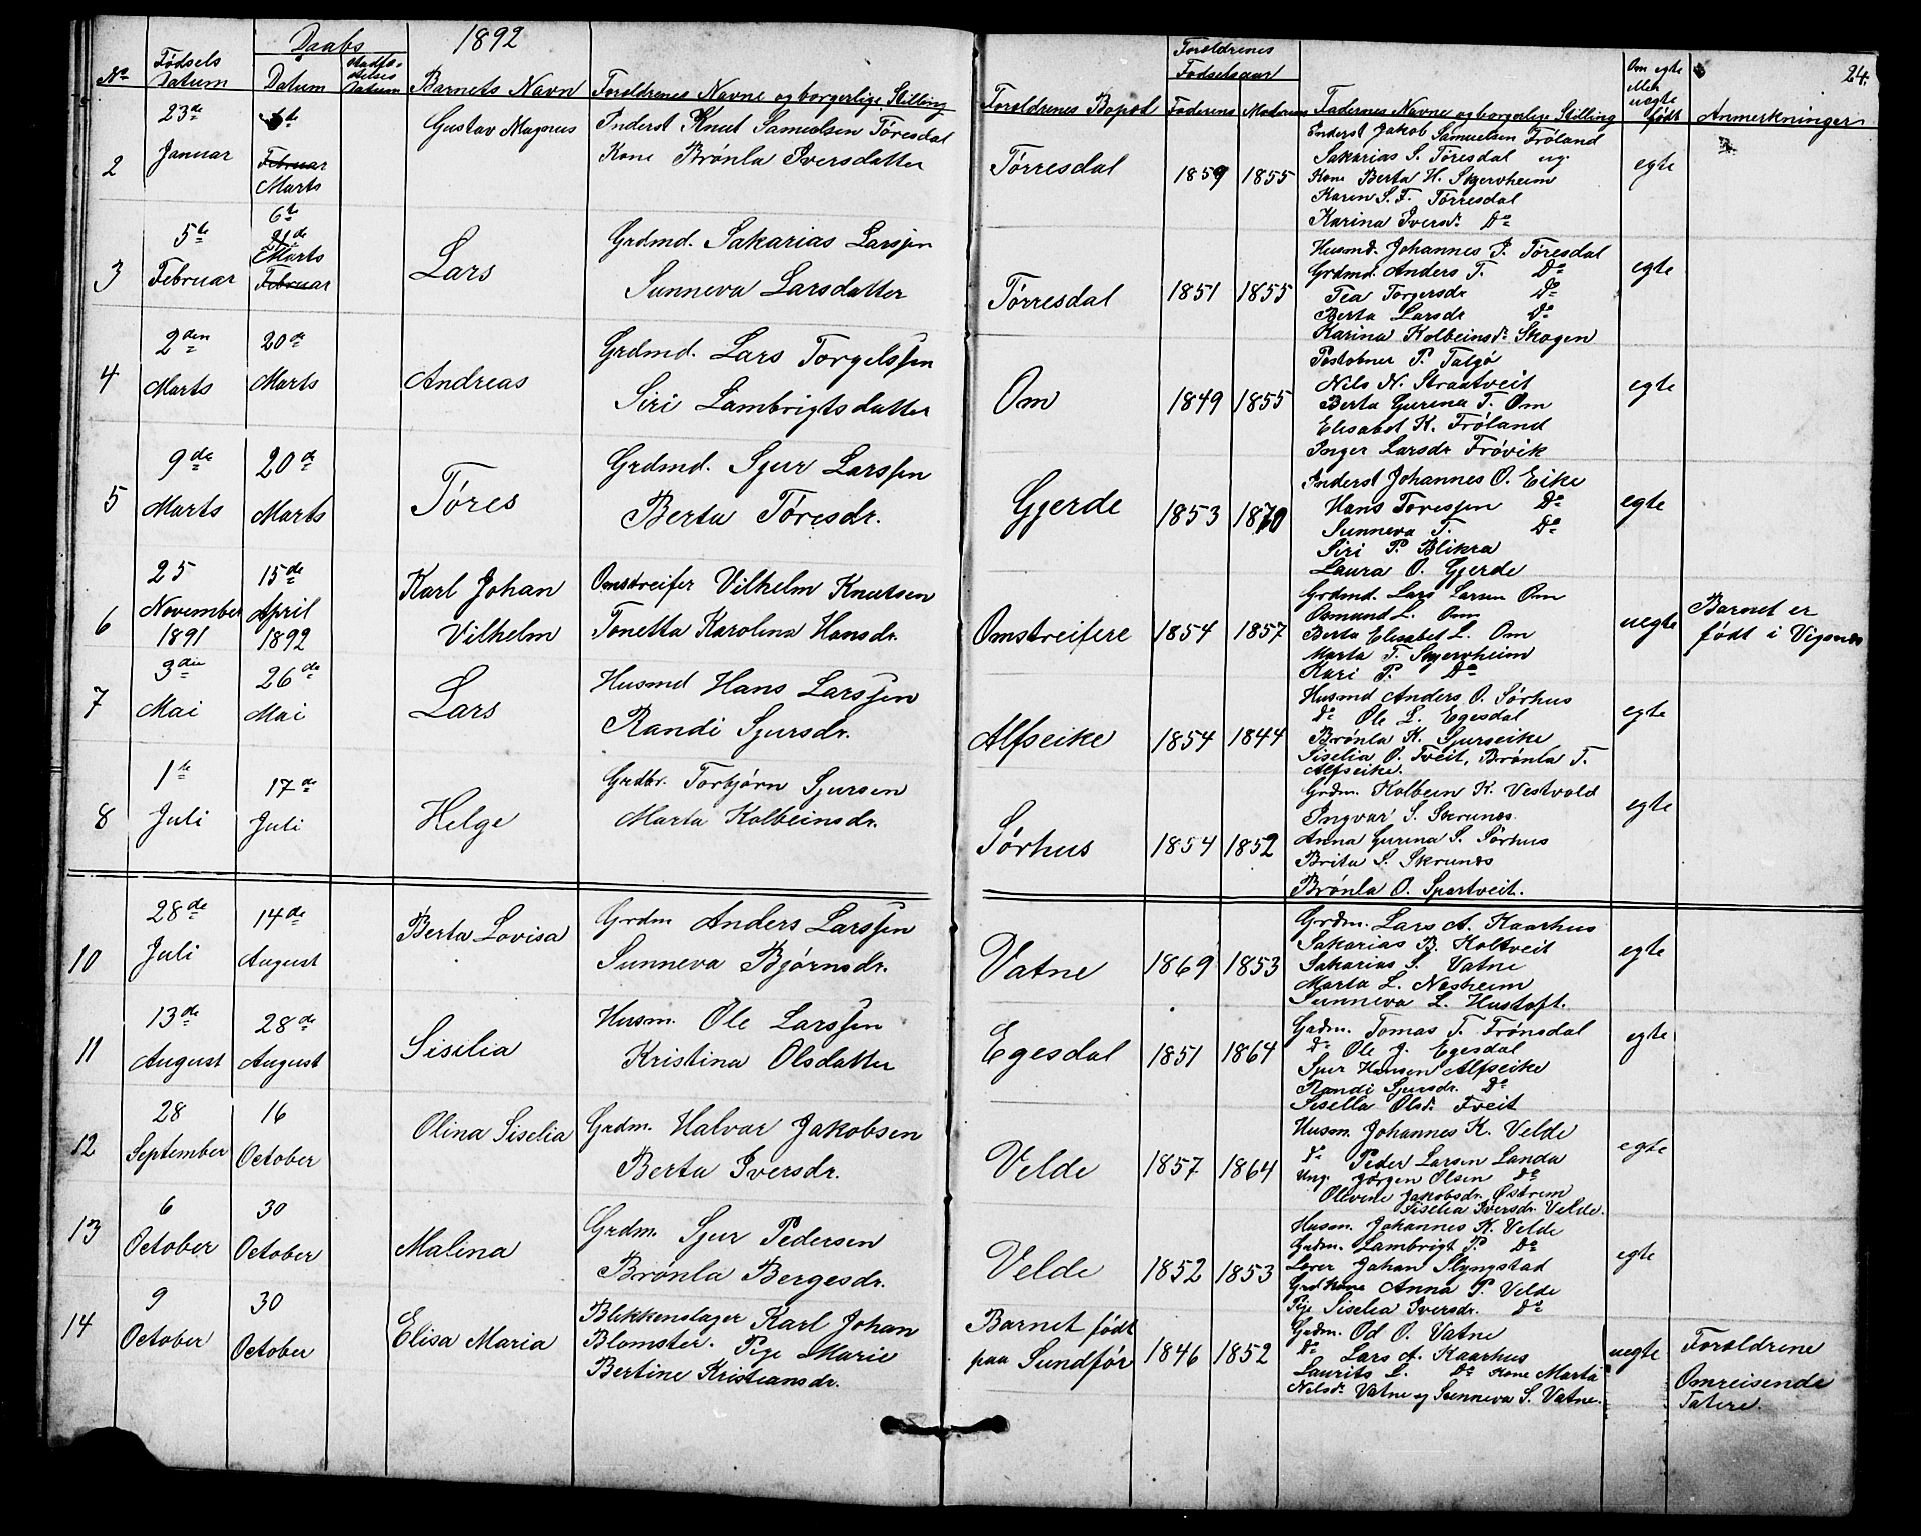 1892
24.
No
Fødsels Datum
Daabs Datum
Stadfæstelses Datum
Barnets Navn
Forældrenes Navne og borgerlige Stilling
Forældrenes Bopæl
Forældrenes Fødselsaar
Faderens
Moderens
Faderenes Navne og borgerlige Stilling
Om egte eller uegte født
Anmerkninger
2
23de Januar
6te Februar Marts
Gustav Magnus
Inderst Knut Samuelsen Tøresdal
Kone Brønla Iversdatter
Tørresdal
1859
1855
Inderst Jakob Samuelsen Frøland
Sakarias S. Tøresdal ug.
Kone Berta H. Skjervheim
Karen S. T. Tørresdal
Karina Iversd. Do
egte
3
5te Februar
6te
21de Marts
Februar
Lars
Grdmd. Sakarias Larssen
Sunneva Larsdatter
Tørresdal
1851
1855
Husmd. Johannes I. Tøresdal
Grdmd. Anders T. Do
Tea Torgersdr Do
Berta Larsdr Do
Karina Kolbeinsdr Skogen
egte
4
2den Marts
20de Marts
Andreas
Grdmd. Lars Torgelssen
Siri Lambrigtsdatter
Om
1849
1855
Postobner P. Talgø
Nils N. Straatveit
Berta Gurina T. Om
Elisabet K. Frøland
Inger Larsdr Frøvik
egte
5
9de Marts
20de Marts
Tøres
Grdmd. Sjur Larssen
Berta Tøresdr.
Gjerde
1853
1870
Inderst Johannes O. Eike
Hans Toressen Do
Sunneva T. Do
Siri P. Blikra
Laura O. Gjerde
egte
6
25 November 1891
15de April 1892
Karl Johan
Vilhelm
Omstreifer Vilhelm Knutsen
Tonetta Karolina Hansdr.
Omstreifere
1854
1857
Grdmd. Lars Larsen Om
Osmund L. Om
Berta Elisabet L. Om
Marta T. Skjervheim
Kari P. Do
uegte
Barnet er
født i Vigsnes
7
3die Mai
26de Mai
Lars
Husmd Hans Larssen
Randi Sjursdr.
Alfseike
1854
1844
Husmd Anders O. Sørhus
Do Ole L. Egesdal
Brønla K. Sjurseike
Siselia O. Tveit, Brønla T.
Alfseike.
egte
8
1te Juli
17de Juli
Helge
Grdbr. Torbjørn Sjursen
Marta Kolbeinsdr.
Sørhus
1854
1852
Grdm. Kolbein K. Vestvold
Ingvar S. Skrunes.
Anna Gurina S. Sørhus
Brita S. Skrunes
Brønla O. Spartveit.
egte
10
28de Juli
14de August
Berta Lovisa
Grdm Anders Larssen
Sunneva Bjørnsdr.
Vatne
1869
1853
Grdm. Lars A. Kaarhus
Sakarias B. Holtveit
Sakarias S. Vatne
Marta L. Nesheim
Sunneva L. Hustoft.
egte
11
13de August
28de August
Siselia
Husm. Ole Larssen
Kristina Olsdatter
Egesdal
1851
1864
Grdm. Tomas T. Frønsdal
Do Ole J. Egesdal
Sjur Hansen Alfseike
Randi Sjursdr. Do
Sisella Olsdr. Tveit
egte
12
28 September
16 October
Olina Siselia
Grdm. Halvar Jakobsen
Berta Iversdr.
Velde
1857
1864
Husm. Johannes K. Velde
Do Peder Larsen Landa
Ung. Jørgen Olsen Do
Olevine Jakobsdr. Østrem
Siselia Iversdr. Velde.
egte
13
6 October
30 October
Malina
Grdm. Sjur Pedersen
Brønla Bergesdr.
Velde
1852
1853
Husm. Johannes K. Velde
Grdm. Lambrigt P. Do
Lærer Johan Slyngstad
Grdkone Anna P. Velde
Pige Siselia Iversdr. Do
egte
14
9 October
30 October
Elisa Maria
Blikkenslager Karl Johan
Blomster. Pige Marie
Bertine Kristiansdr.
Barnet født
paa Sundfør
1846
1852
Grdm. Od O. Vatne
Do Lars A. Kaarhus
Laurits L. Do Kone Marta
Nelsdr. Vatne og Sunneva S. Vatne.
uegte
Forældrene
Omreisende
Tatere.